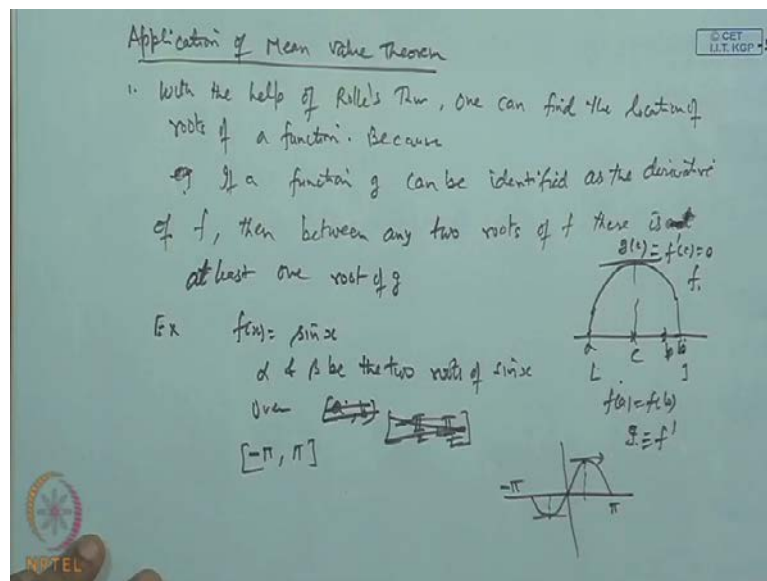 Application of Mean Value Theorem
© CET
I.I.T. KGP
1. With the help of Rolle's Thm, one can find the location of
roots of a function. Because
If a function g can be identified as the derivative
of f, then between any two roots of f there is
at least one root of g
g(c) = f'(c) = 0
f
a c b
[ . ]
f(a) = f(b)
g ≡ f'
Ex f(x) = sin x
α & β be the two roots of sin x
Over
[-π, π]
-π π
NPTEL